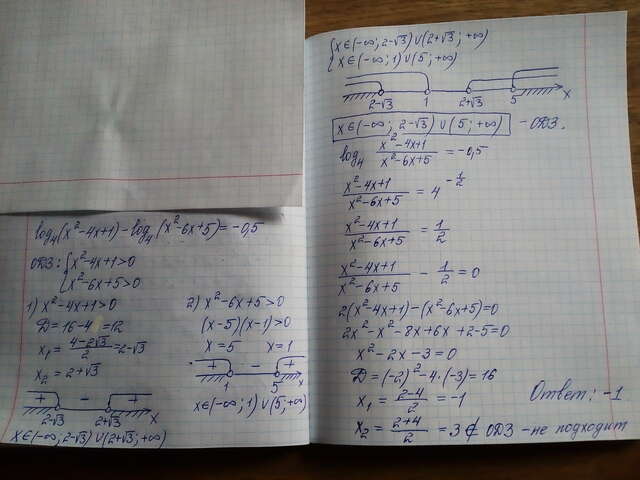 log₄(x²-4x+1)-log₄(x²-6x+5)=-0,5
ОДЗ: {x²-4x+1>0
{x²-6x+5>0
1) x²-4x+1>0
D=16-4=12
x₁=(4-2√3)/2=2-√3
x₂=2+√3
+ - +
2-√3 2+√3 x
x∈(-∞; 2-√3)∪(2+√3; +∞)
2) x²-6x+5>0
(x-5)(x-1)>0
x=5 x=1
+ - +
1 5 x
x∈(-∞; 1)∪(5; +∞)
{x∈(-∞; 2-√3)∪(2+√3; +∞)
{x∈(-∞; 1)∪(5; +∞)
2-√3 1 2+√3 5 x
x∈(-∞; 2-√3)∪(5; +∞) - ОДЗ.
log₄ (x²-4x+1)/(x²-6x+5) = -0,5
(x²-4x+1)/(x²-6x+5) = 4^(-1/2)
(x²-4x+1)/(x²-6x+5) = 1/2
(x²-4x+1)/(x²-6x+5) - 1/2 = 0
2(x²-4x+1)-(x²-6x+5)=0
2x²-x²-8x+6x+2-5=0
x²-2x-3=0
D=(-2)²-4·(-3)=16
x₁=(2-4)/2=-1
Ответ: -1
x₂=(2+4)/2=3∉ ОДЗ - не подходит